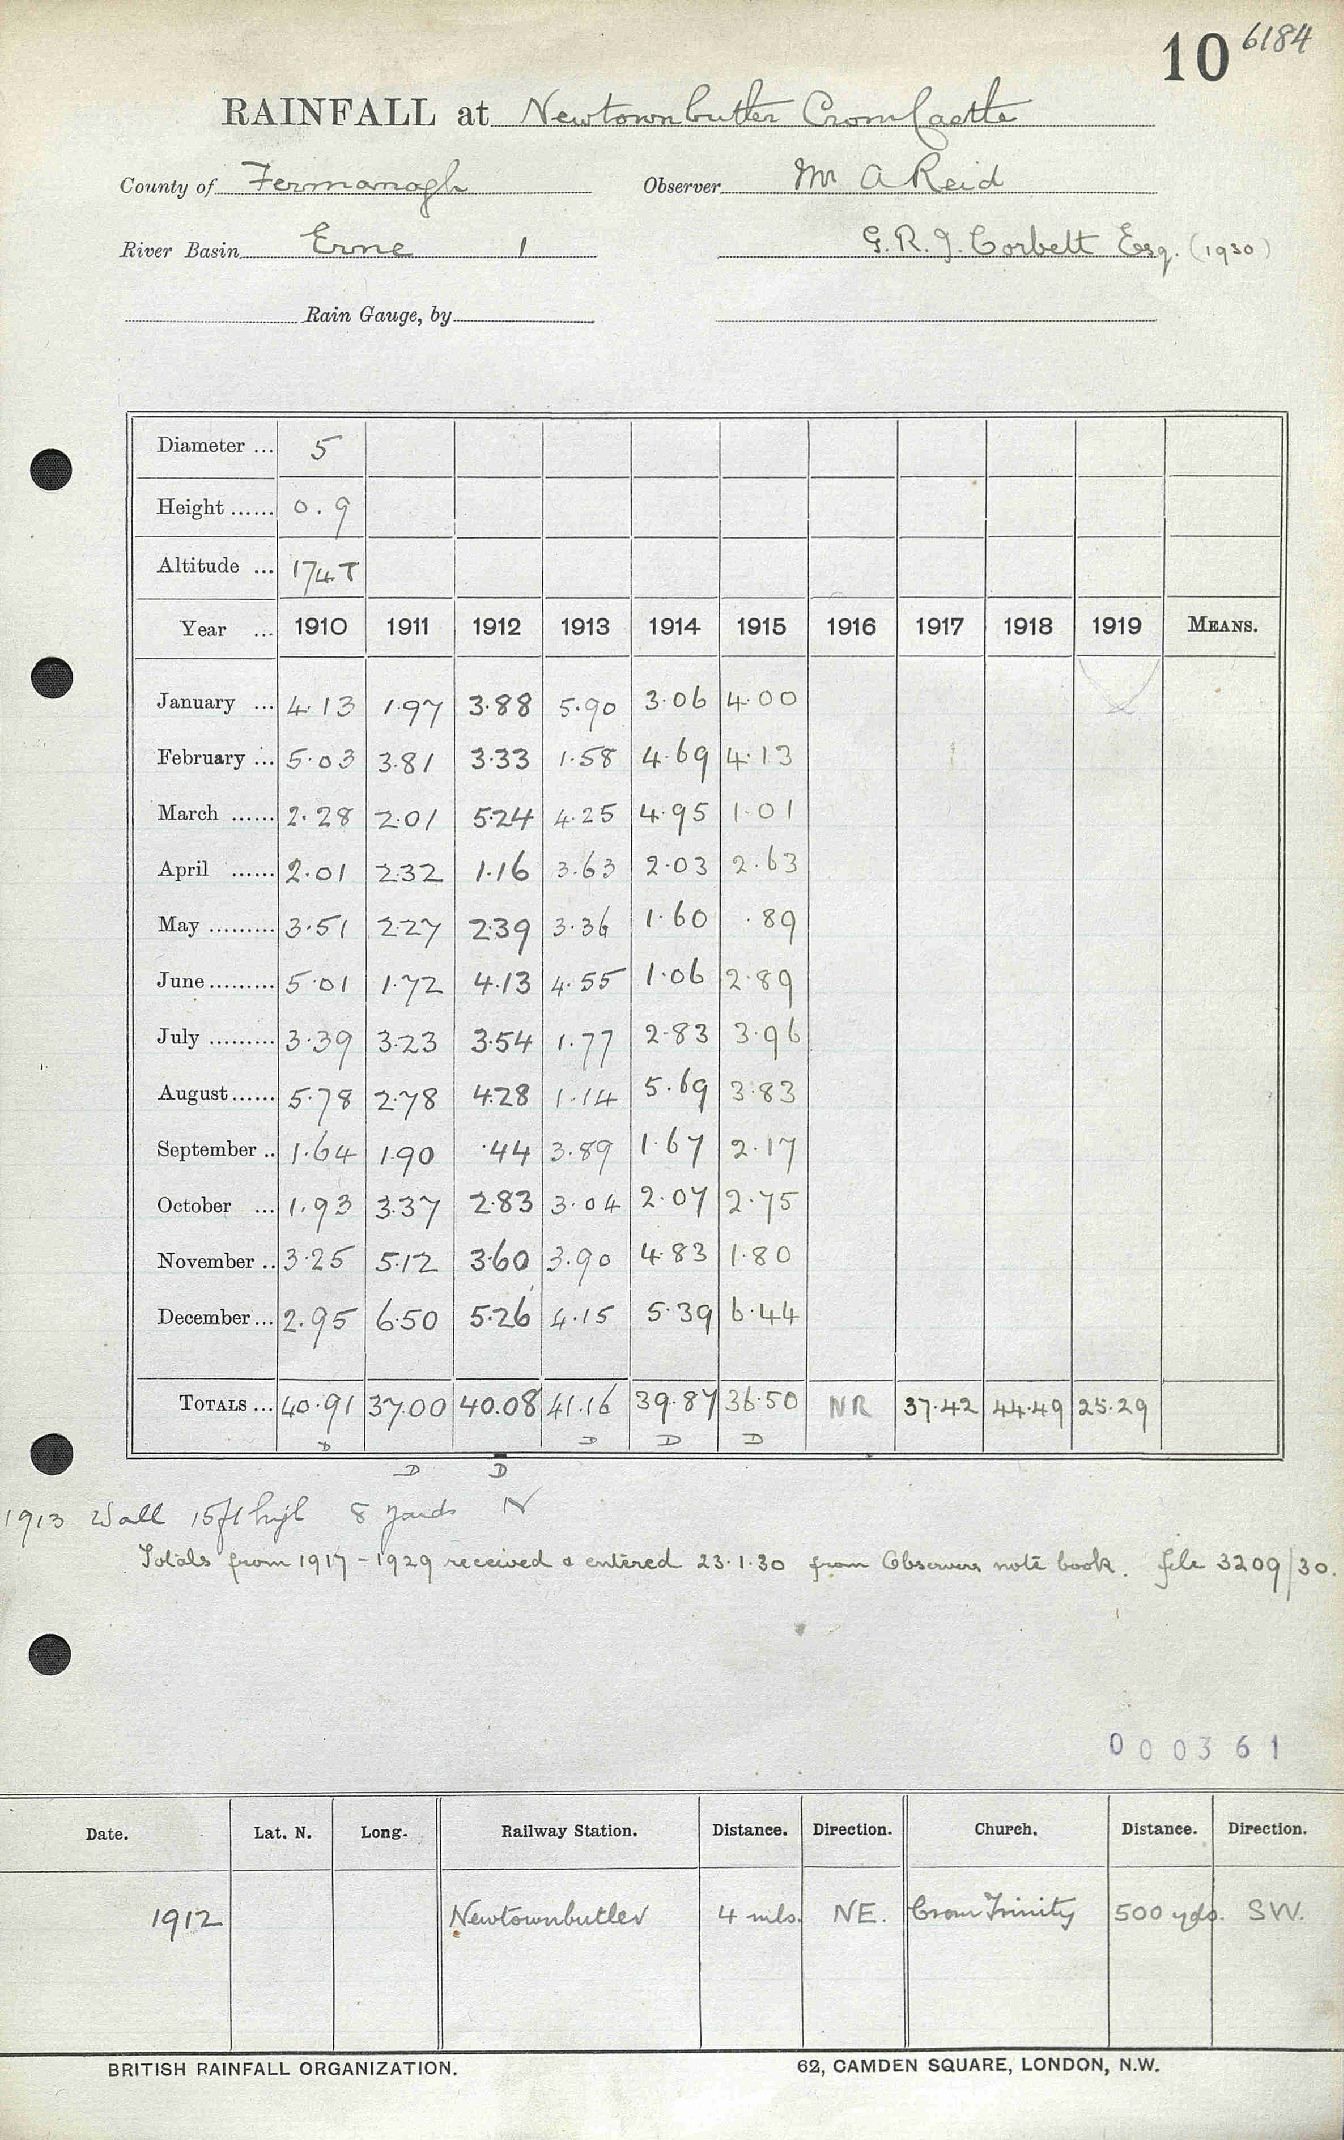 10 6184
RAINFALL at Newtownbutler Crom Castle
County of Fermanagh Observer Mr A Reid
River Basin Erne 1 G. R. J. Corbett Esq. (1930)
Rain Gauge, by
Diameter ... 5
Height ...... 0.9
Altitude ... 174 T
Year ... 1910 1911 1912 1913 1914 1915 1916 1917 1918 1919 MEANS.
January ... 4.13 1.97 3.88 5.90 3.06 4.00
February ... 5.03 3.81 3.33 1.58 4.69 4.13
March ...... 2.28 2.01 5.24 4.25 4.95 1.01
April ...... 2.01 2.32 1.16 3.63 2.03 2.63
May ......... 3.51 2.27 2.39 3.36 1.60 .89
June ......... 5.01 1.72 4.13 4.55 1.06 2.89
July ......... 3.39 3.23 3.54 1.77 2.83 3.96
August ...... 5.78 2.78 4.28 1.14 5.69 3.83
September .. 1.64 1.90 .44 3.89 1.67 2.17
October ... 1.93 3.37 2.83 3.04 2.07 2.75
November .. 3.25 5.12 3.60 3.90 4.83 1.80
December ... 2.95 6.50 5.26 4.15 5.39 6.44
TOTALS ... 40.91 37.00 40.08 41.16 39.87 36.50 NR 37.42 44.49 25.29
D D D D
D D
1913 Wall 15ft high 8 yards N
Totals from 1917 - 1929 received & entered 23.1.30 from Observers note book. file 3209/30.
000361
Date. Lat. N. Long. Railway Station. Distance. Direction. Church. Distance. Direction.
1912 Newtownbutler 4 mls. NE. Crom Trinity 500 yds. SW.
BRITISH RAINFALL ORGANIZATION. 62, CAMDEN SQUARE, LONDON, N.W.